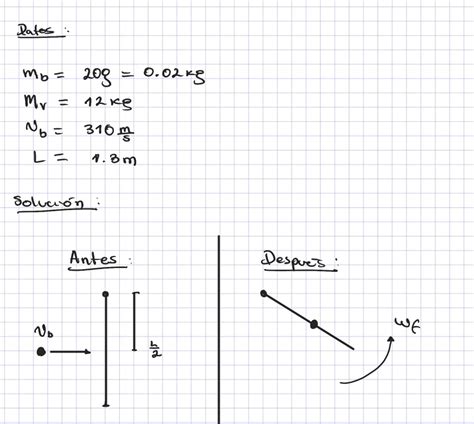 Datos:
mb = 20g = 0.02kg
Mr = 12kg
Vb = 310 m/s
L = 1.8m
Solución:
Antes:
Despues:
Vb
L/2
ωf